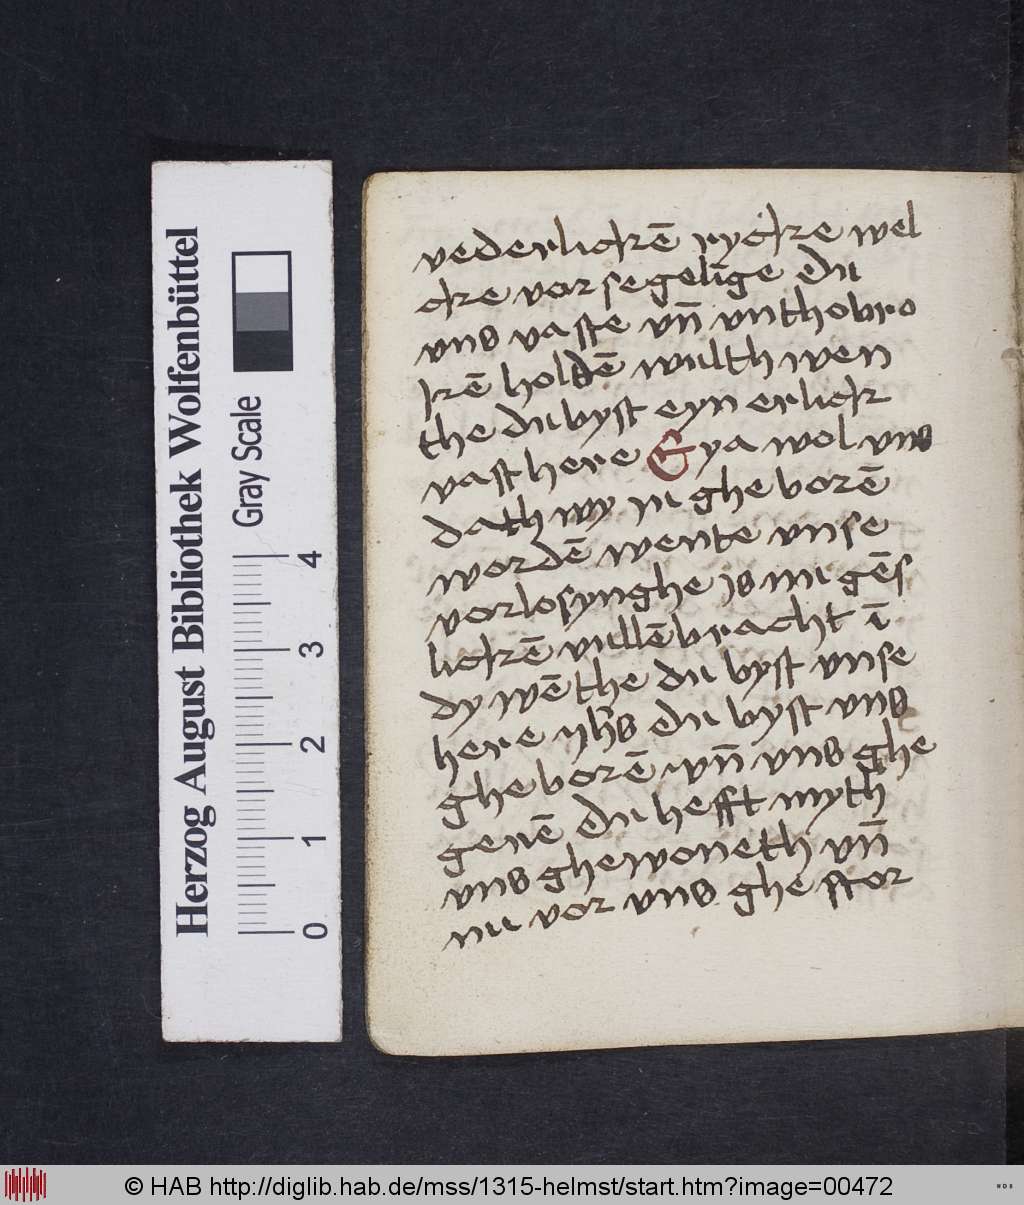 vederlickē rycke wel
cke vorsegelīge du
vns vaste vn̄ vnthobro
kē holdē wulth wen
the du byst eyn erlick
vast here Eya wol vns
dath wy in ghe borē
wordē wente vnse
vorlosynghe is in gēs
lickē vullēbracht ī
dy wēthe du byst vnse
here yh̄s du byst vns
ghe borē vn̄ vns ghe
geuē du hefft myth
vns ghewoneth vn̄
nu vor vns ghe stor
Herzog August Bibliothek Wolfenbüttel
Gray Scale
0 1 2 3 4
© HAB http://diglib.hab.de/mss/1315-helmst/start.htm?image=00472